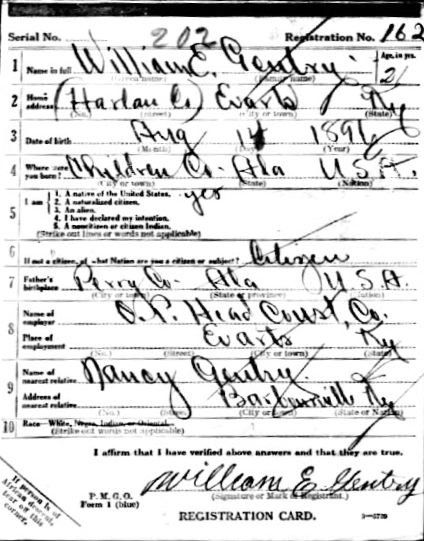 Serial No. 202 Registration No. 162
1 Name in full William E. Gentry Age, in yrs. 21
(Given name) (Family name)
2 Home address (Harlan Co) Evarts Ky
(No.) (Street) (City or town) (State)
3 Date of birth Aug 14 1896
(Month) (Day) (Year)
4 Where were you born? Children Co. Ala U.S.A.
(City or town) (State) (Nation)
5 I am 1. A native of the United States. yes
2. A naturalized citizen.
3. An alien.
4. I have declared my intention.
5. A noncitizen or citizen Indian.
(Strike out lines or words not applicable)
6 If not a citizen, of what Nation are you a citizen or subject? Citizen
7 Father's birthplace Perry Co- Ala U.S.A.
(City or town) (State or province) (Nation)
8 Name of employer O.P. Head Const. Co.
Place of employment Evarts Ky
(No.) (Street) (City or town) (State)
9 Name of nearest relative Nancy Gentry
Address of nearest relative Barbourville Ky
(No.) (Street) (City or town) (State or Nation)
10 Race—White, Negro, Indian, or Oriental.
(Strike out words not applicable)
I affirm that I have verified above answers and that they are true.
William E Gentry
P. M. G. O.
Form 1 (blue)
(Signature or Mark of Registrant.)
REGISTRATION CARD.
If person is of
African descent,
tear off this
corner.